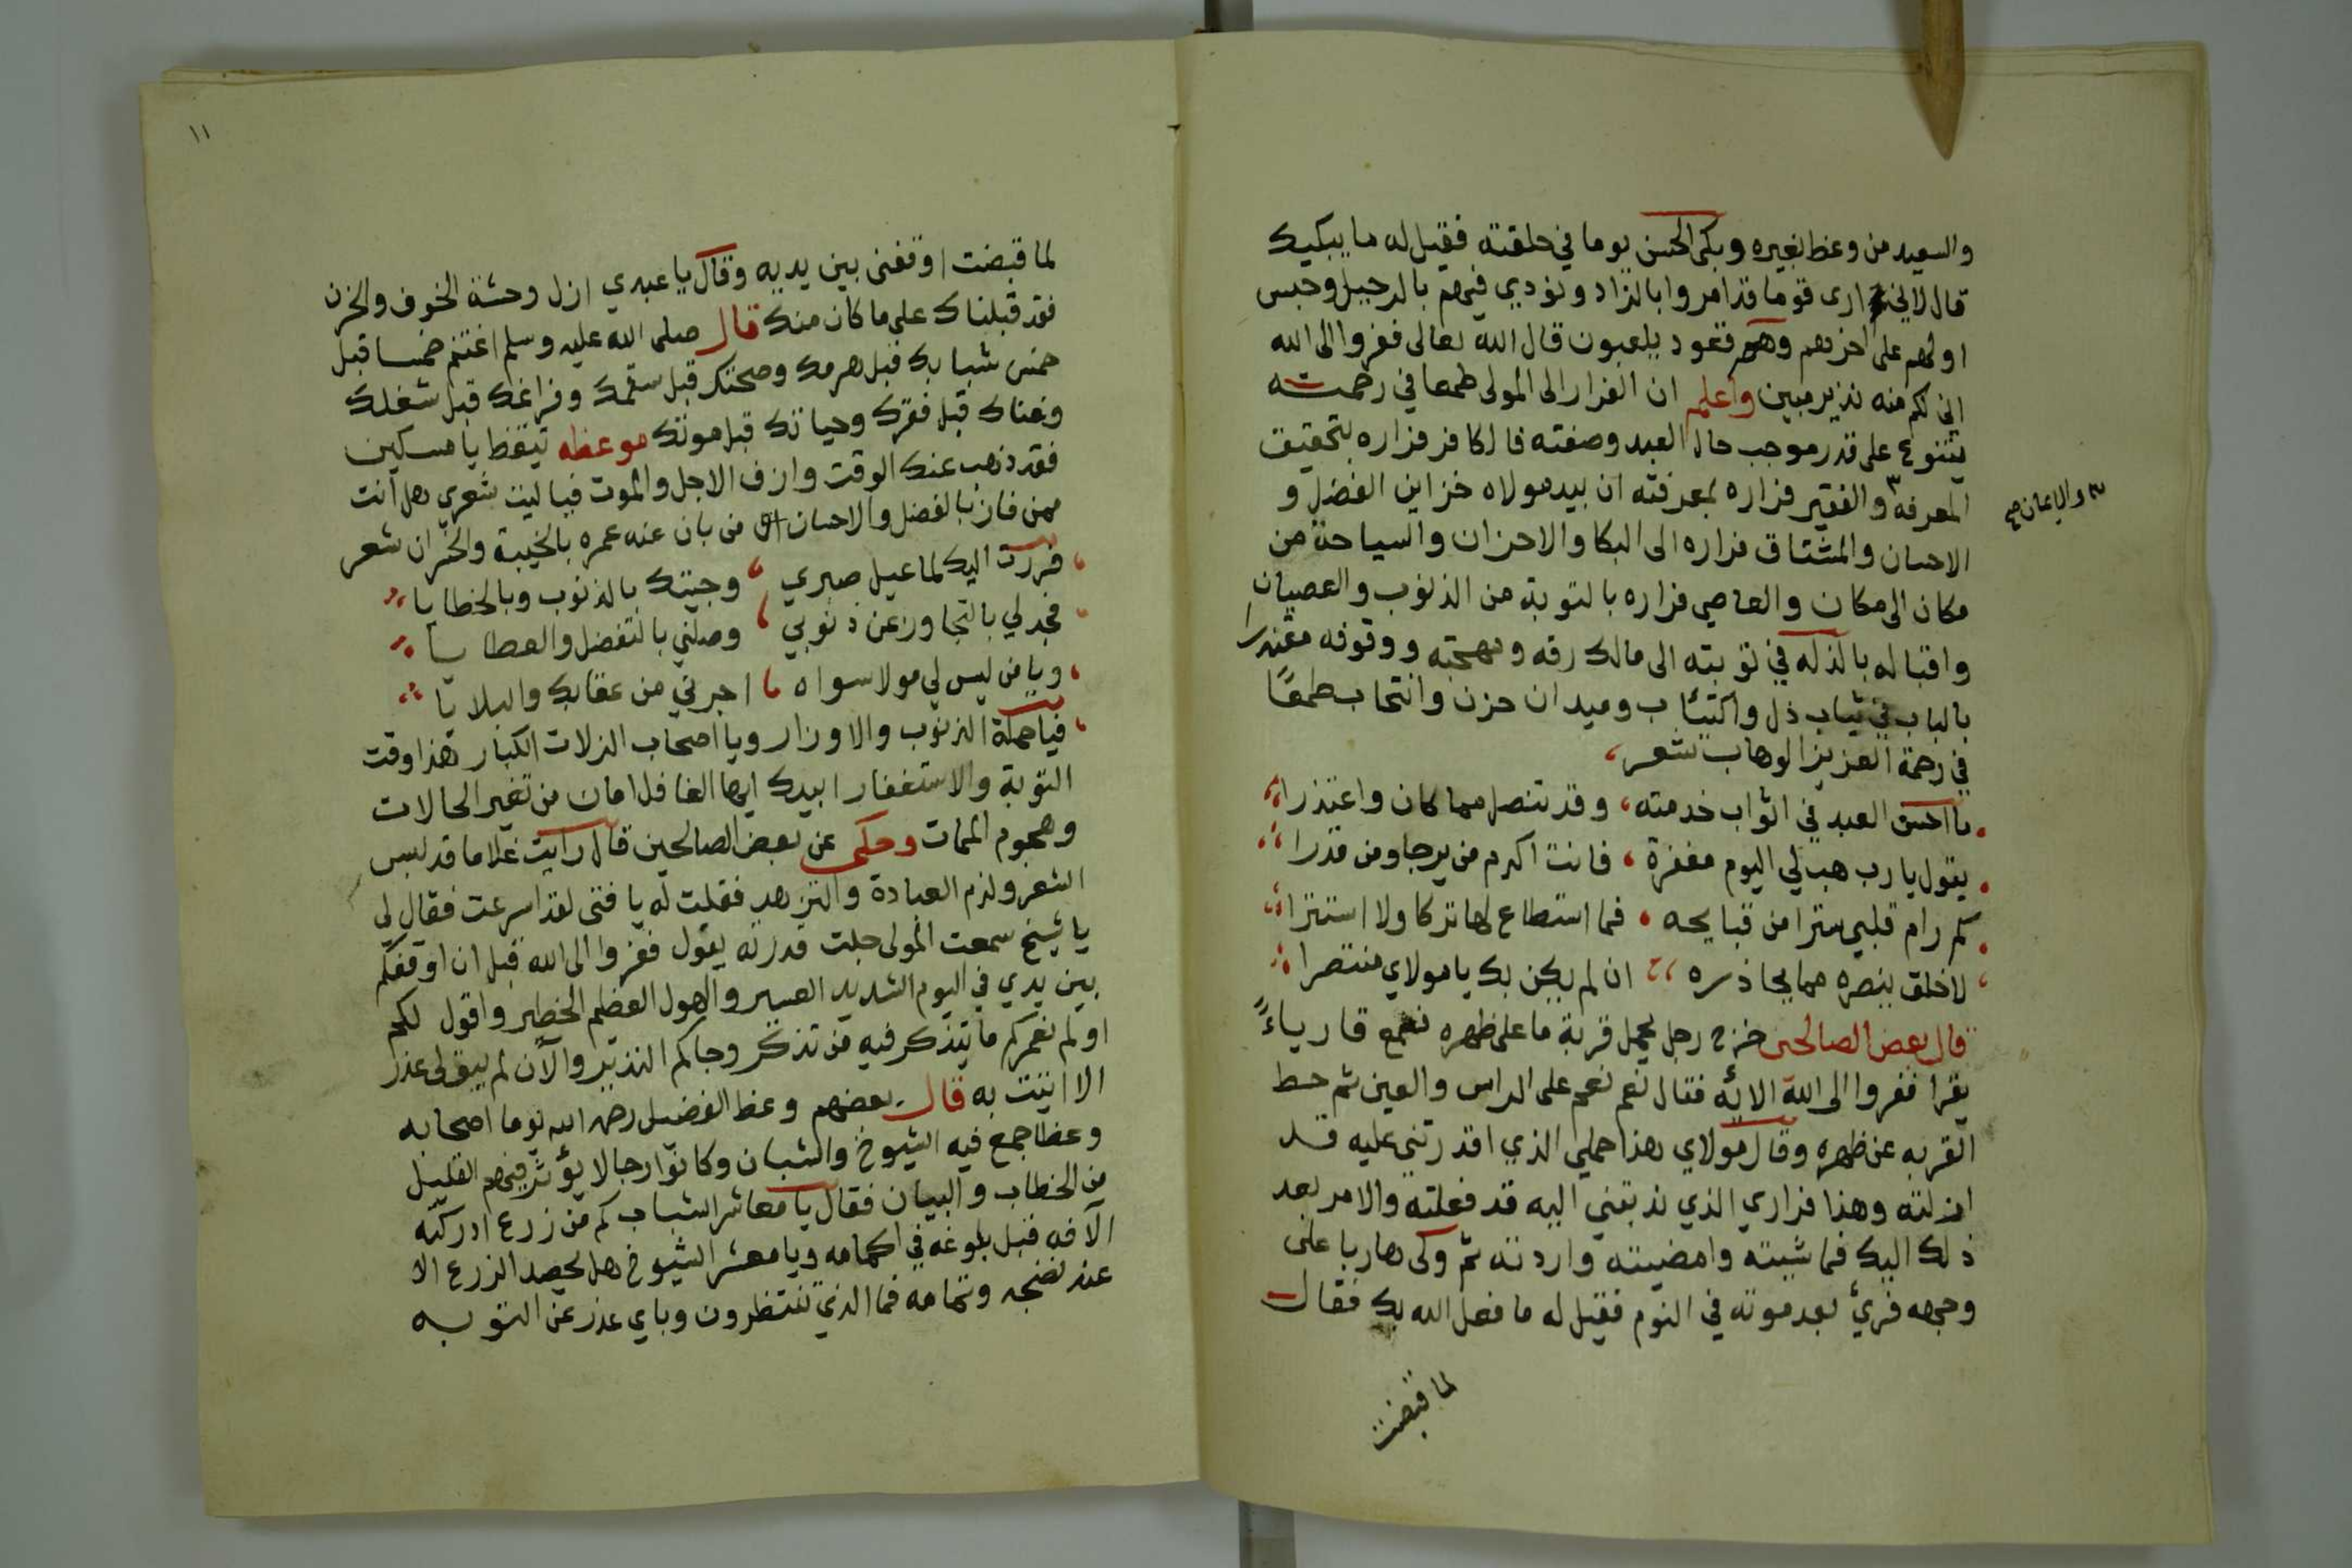 والسعيد من وعظ بغيره وبكى الحسن يوما في حلقته فقيل له ما يبكيك
قال لاني ارى قوما قد امروا بالزاد ونودي فيهم بالرحيل وحبس
اولهم على اخرهم وهم قعود يلعبون قال الله تعالى ففروا الى الله
اني لكم منه نذير مبين واعلم ان الفرار الى المولى طمعا في رحمته
يتنوع على قدر موجب حال العبد وصفته فالكافر فراره بتحقيق
المعرفه والفقير فراره بمعرفته ان بيد مولاه خزاين الفضل و
والايمان صح
الاحسان والمشتاق فراره الى البكا والاحزان والسياحة من
مكان الى مكان والعاصي فراره بالتوبة من الذنوب والعصيان
واقباله بالذله في توبته الى مالك رقه ومهجته ووقوفه معتذرا
بالباب في ثياب ذل واكتئاب وميدان حزن وانتحاب طمعًا
في رحمة العزيز الوهاب شعر
يا احسن العبد في اثواب خدمته وقد تنصل مما كان واعتذرا
يقول يا رب هب لي اليوم مغفرة فانت اكرم من يرجا ومن قدرا
كم رام قلبي سترا من قبايحه فما استطاع لها تركا ولا استترا
لا خلق ينصره مما يحاذره ان لم يكن بك يا مولاي منتصرا
قال بعض الصالحين خرج رجل يحمل قربة ما على ظهره فسمع قارياءً
يقرا ففروا الى الله الايه فقال نعم نعم على الراس والعين ثم حط
القربه عن ظهره وقال مولاي هذا حملي الذي اقدرتني عليه قد
انزلته وهذا فراري الذي ندبتني اليه قد فعلته والامر بعد
ذلك اليك فما شيته وامضيته واردته ثم ولى هاربا على
وجهه فرئ بعد موته في النوم فقيل له ما فعل الله بك فقال
لما قبضت
١١
لما قبضت اوقفني بين يديه وقال يا عبدي ازل وحشة الخوف والحزن
فقد قبلناك على ما كان منك قال صلى الله عليه وسلم اغتنم خمسا قبل
خمس شبابك قبل هرمك وصحتك قبل سقمك وفراغك قبل شغلك
وغناك قبل فقرك وحياتك قبل موتك موعظه تيقظ يا مسكين
فقد ذهب عنك الوقت وازف الاجل والموت فيا ليت شعري هل انت
ممن فاز بالفضل والاحسان من بان عنه عمره بالخيبة والخسران شعر
فررت اليك لما عيل صبري وجيتك بالذنوب وبالخطايا
فجد لي بالتجاوز عن ذنوبي وصلني بالتفضل والعطايا
ويا من ليس لي مولا سواه اجرني من عقابك والبلايا
فيا حملة الذنوب والاوزار ويا اصحاب الزلات الكبار هذا وقت
التوبة والاستغفار ابيدك ايها الغافل امان من تغير الحالات
وهجوم الممات وحكى عن بعض الصالحين قال رايت غلاما قد لبس
الشعر ولزم العبادة والتزهد فقلت له يا فتى لقد اسرعت فقال لي
يا شيخ سمعت المولى جلت قدرته يقول ففروا الى الله قبل ان اوقفكم
بين يدي في اليوم الشديد العسير والهول العظيم الخطير واقول لكم
او لم نعمركم ما يتذكر فيه من تذكر وجاكم النذير والآن لم يبق لي عذر
الا اتيت به قال بعضهم وعظ الفضيل رضي الله يوما اصحابه
وعظا جمع فيه الشيوخ والشبان وكانوا رجالا يؤثر فيهم القليل
من الخطاب والبيان فقال يا معاشر الشباب كم من زرع ادركته
الآفه قبل بلوغه في اكمامه ويا معشر الشيوخ هل يحصد الزرع الا
عند نضجه وتمامه فما الذي تنتظرون وباي عذر عن التوبه